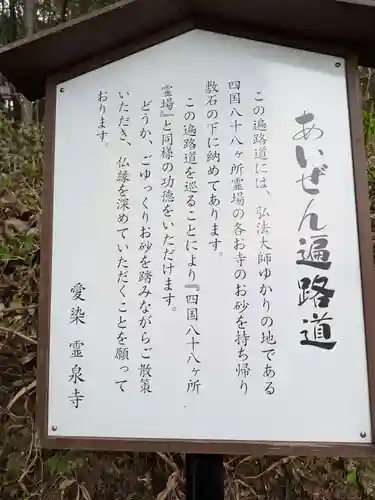 あいぜん遍路道
この遍路道には、弘法大師ゆかりの地である
四国八十八ヶ所霊場の各お寺のお砂を持ち帰り
敷石の下に納めてあります。
この遍路道を巡ることにより『四国八十八ヶ所
霊場』と同様の功徳をいただけます。
どうか、ごゆっくりお砂を踏みながらご散策
いただき、仏縁を深めていただくことを願って
おります。
愛染 霊泉寺